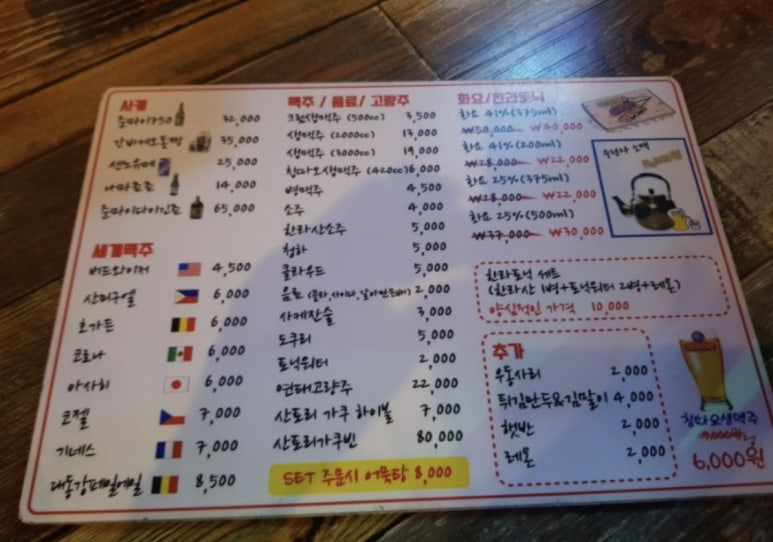 사케
준마이750 32,000
간바레오또짱 35,000
센노유메 25,000
나마죠죠 14,000
준마이다이긴죠 65,000
세계맥주
버드와이저 4,500
산미구엘 6,000
호가든 6,000
코로나 6,000
아사히 6,000
코젤 7,000
기네스 7,000
대동강페일에일 8,500
맥주 / 음료/ 고량주
크림생맥주 (500cc) 3,500
생맥주 (2000cc) 13,000
생맥주 (3000cc) 19,000
칭따오생맥주 (420cc) 6,000
병맥주 4,500
소주 4,000
한라산소주 5,000
청하 5,000
클라우드 5,000
음료 (콜라,사이다,갈아만든배) 2,000
사케잔술 3,000
도쿠리 5,000
토닉워터 2,000
연태고량주 22,000
산토리 가쿠 하이볼 7,000
산토리가쿠빈 80,000
SET 주문시 어묵탕 8,000
화요/한라토닉
화요 41%(375ml)
₩50,000 ₩40,000
화요 41%(200ml)
₩28,000 ₩22,000
화요 25%(375ml)
₩28,000 ₩22,000
화요 25%(500ml)
₩37,000 ₩30,000
한라토닉 세트
(한라산 1병+토닉워터 2병+레몬)
양심적인 가격 10,000
추가
우동사리 2,000
튀김만두&김말이 4,000
햇반 2,000
레몬 2,000
칭따오생맥주
7,000원
6,000원